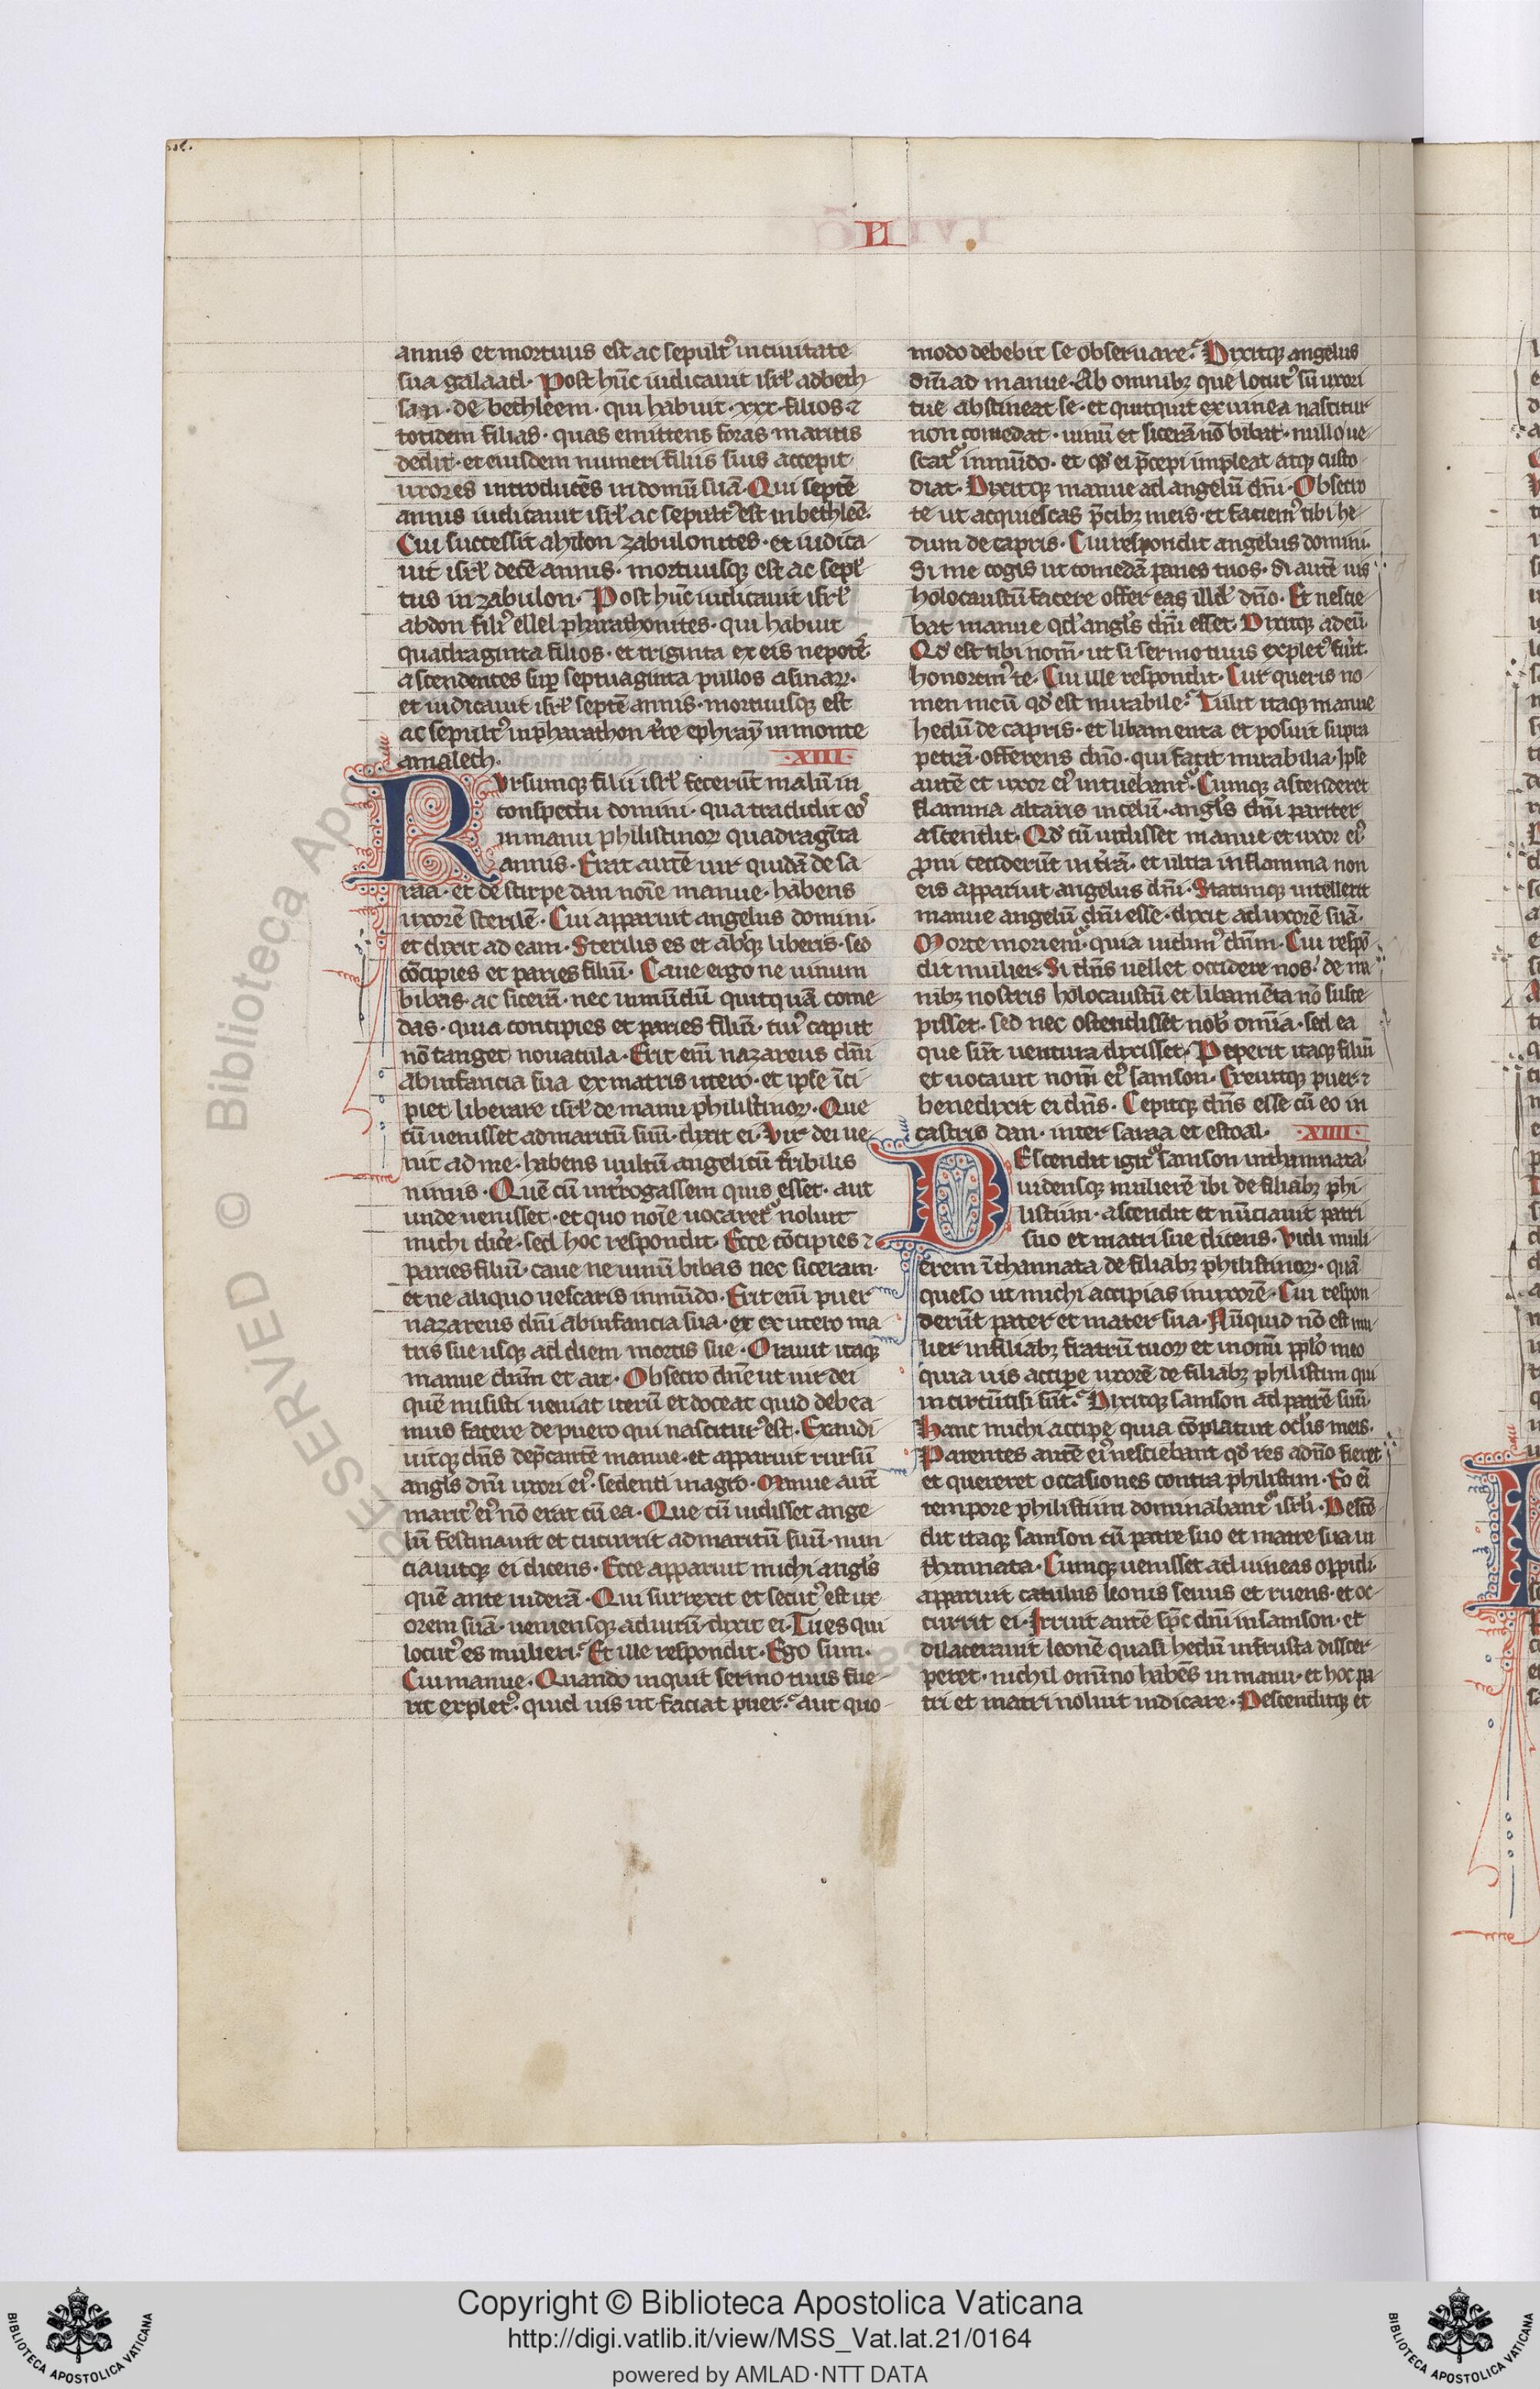 II
annis et mortuus est ac sepult᷒ in ciuitate
sua galaad. Post hūc iudicauit isrł adbeth
san. de bethleem. qui habuit .xxx. filios. ⁊
totidem filias. quas emittens foras maritis
dedit. et eiusdem numeri filiis suis accepit
uxores introducēs in domū suā. Qui septē
annis iudicauit isrł ac sepult᷒ est in bethleē.
Cui successit ahilon zabulonites. et iudica
uit isrł decē annis. mortuusqꝫ est ac sepł
tus in zabulon. Post hūc iudicauit isrł
abdon fili᷒ ellel pharathonites. qui habuit
quadraginta filios. et triginta ex eis nepotē.
ascendentes suꝑ septuaginta pullos asinaꝝ.
et iudicauit isrł septē annis. mortuusqꝫ est
ac sepult᷒ in pharathon t̄re ephraym in monte
amalech. .XIII.
Rursumqꝫ filii isrł fecerūt malū in
conspectu domini. qua tradidit eo᷒
in manu philistinoꝝ quadragīta
annis. Erat autē uir quidā de sa
raa. et de stirpe dan noīe manue. habens
uxorē sterilē. Cui apparuit angelus domini.
et dixit ad eam. Sterilis es et absqꝫ liberis. sed
cōcipies et paries filiū. Caue ergo ne uinum
bibas. ac sicerā. nec inmūdū quitquā come
das. quia concipies et paries filiū. cui᷒ caput
nō tanget nouacula. Erit eīm nazareus dn̄i
ab infancia sua ex matris utero. et ipse īci
piet liberare isrł de manu philistinoꝝ. Que
cū uenisset ad maritū suū. dixit ei. Vir dei ue
nit ad me. habens uultū angelicū t̄ribilis
nimis. Quē cū int̄rogassem quis esset. aut
unde uenisset. et quo noīe uocaret᷒ noluit
michi dice̅. sed hoc respondit. Ecce cōcipies ⁊
paries filiū. caue ne uinū bibas nec siceram.
et ne aliquo uescaris inmūdo. Erit eīm puer
nazareus dn̄i ab infancia sua. et ex utero ma
tris sue usqꝫ ad diem mortis sue. Orauit itaqꝫ
manue dn̄m et ait. Obsecro dn̄e ut uir dei
quē misisti ueniat iterū et doceat quid debea
mus facere de puero qui nascitur᷒ est. Exaudi
uitqꝫ dn̄s dep̄cantē manue. et apparuit rursū
angl̄s dn̄i uxori ei᷒. sedenti in agro. Manue aut̄
marit᷒ ei᷒ nō erat cū ea. Que cū uidisset ange
lū festinauit et cucurrit ad maritū suū. nun
ciauitqꝫ ei dicens. Ecce apparuit michi angl̄s
quē ante uiderā. Qui surrexit et secut᷒ est ux
orem suā. ueniensqꝫ ad uirū. dixit ei. Tu es qui
locut᷒ es mulieri. Et ille respondit. Ego sum.
Cui manue. Quando inquit sermo tuus fue
rit explet᷒. quid uis ut faciat puer. aut quo
modo debebit se obseruare. Dixitqꝫ angelus
dn̄i ad manue. Ab omnibꝫ que locut᷒ sū uxori
tue abstineat se. et quitquit ex uinea nascitur
non comedat. uinū et sicerā nō bibat. nullo ue
scat᷒ inmūdo. et qd̄ ei p̄cepi impleat atqꝫ custo
diat. Dixitqꝫ manue ad angelū dn̄i. Obsecro
te ut acquiescas p̄cibꝫ meis. et faciem᷒ tibi he
dum de capris. Cui respondit angelus domini.
Si me cogis ut comedā panes tuos. Si autē uis
holocaustū facere offer eas illd̄ dn̄o. Et nescie
bat manue qd̄ angl̄s dn̄i esset. Dixitqꝫ ad eū
Qd̄ est tibi nom̄. ut si sermo tuus explet᷒ fūit.
honorem᷒ te. Cui ille respondit. Cur queris no
men meū qd̄ est mirabile. Tulit itaqꝫ manue
hedū de capris. et libamenta et posuit supra
petrā. offerens dn̄o. qui facit mirabilia. Ipse
autē et uxor ei᷒ intuebant᷒. Cumqꝫ ascenderet
flamma altaris in celū. angl̄s dn̄i pariter
ascendit. Qd̄ cū uidisset manue et uxor ei᷒
ꝓni ceciderūt in t̄rā. et ultra in flamma non
eis apparuit angelus dn̄i. Statimqꝫ intellexit
manue angelū dn̄i esse. dixit ad uxorē suā.
Morte moriem᷒. quia uidim᷒ dn̄m. Cui respō
dit mulier. Si dn̄s uellet occidere nos. de ma
nibꝫ nostris holocaustū et libamēta nō susce
pisset. sed nec ostendisset nob̄ omīa. sed ea
que sūt uentura dixisset. Peperit itaqꝫ filiū
et uocauit nom̄ ei᷒ samson. Creuitqꝫ puer. ⁊
benedixit ei dn̄s. Cepitqꝫ dn̄s esse cū eo in
castris dan. inter saraa et estoal. .XIIII.
DEscendit igit᷒ samson in thannata.
uidensqꝫ mulierē ibi de filiabꝫ phi
listiim. ascendit et nūciauit patri
suo et matri sue dicens. Vidi muli
erem ī thannata de filiabꝫ philistinoꝝ. quā
queso ut michi accipias in uxorē. Cui respon
derūt pater et mater sua. Nūquid nō est mu
lier in filiabꝫ fratrū tuoꝝ et in omī pp̄lo meo
quia uis accipe̅ uxorē de filiabꝫ philistim qui
incircūcisi sūt. Dixitqꝫ samson ad patrē suū.
Hanc michi accipe quia cōplacuit ocl̄is meis.
Parentes autē ei᷒ nesciebant qd̄ res a dn̄o fieret
et quereret occasiones contra philistim. Eo eī
tempore philistiim dominabant᷒ isrł̄i. Descē
dit itaqꝫ samson cū patre suo et matre sua in
thannata. Cumqꝫ uenisset ad uineas oppidi.
apparuit catulus leonis seuus et ruens. et oc
currit ei. Irruit autē sp̄c dn̄i in samson. et
dilacerauit leonē quasi hedū in frusta disscer
peret. nichil omīno habēs in manu. et hoc pa
tri et matri noluit indicare. Descenditqꝫ et
Copyright © Biblioteca Apostolica Vaticana
http://digi.vatlib.it/view/MSS_Vat.lat.21/0164
powered by AMLAD·NTT DATA
BIBLIOTECA APOSTOLICA VATICANA
BIBLIOTECA APOSTOLICA VATICANA